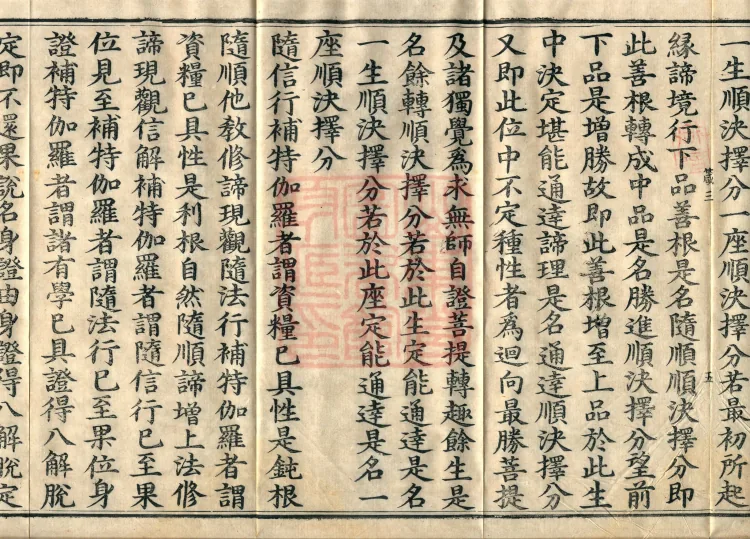 一生順決擇分一座順決擇分若最初所起
緣諦境行下品善根是名隨順順決擇分即
此善根轉成中品是名勝進順決擇分望前
下品是增勝故即此善根增至上品於此生
中決定堪能通達諦理是名通達順決擇分
又即此位中不定種性者爲迴向最勝菩提
及諸獨覺爲求無師自證菩提轉趣餘生是
名餘轉順決擇分若於此生定能通達是名
一生順決擇分若於此座定能通達是名一
座順決擇分
隨信行補特伽羅者謂資糧已具性是鈍根
隨順他教修諦現觀隨法行補特伽羅者謂
資糧已具性是利根自然隨順諦增上法修
諦現觀信解補特伽羅者謂隨信行已至果
位見至補特伽羅者謂隨法行已至果位身
證補特伽羅者謂諸有學已具證得八解脫
定即不還果說名身證由身證得八解脫定
三
五